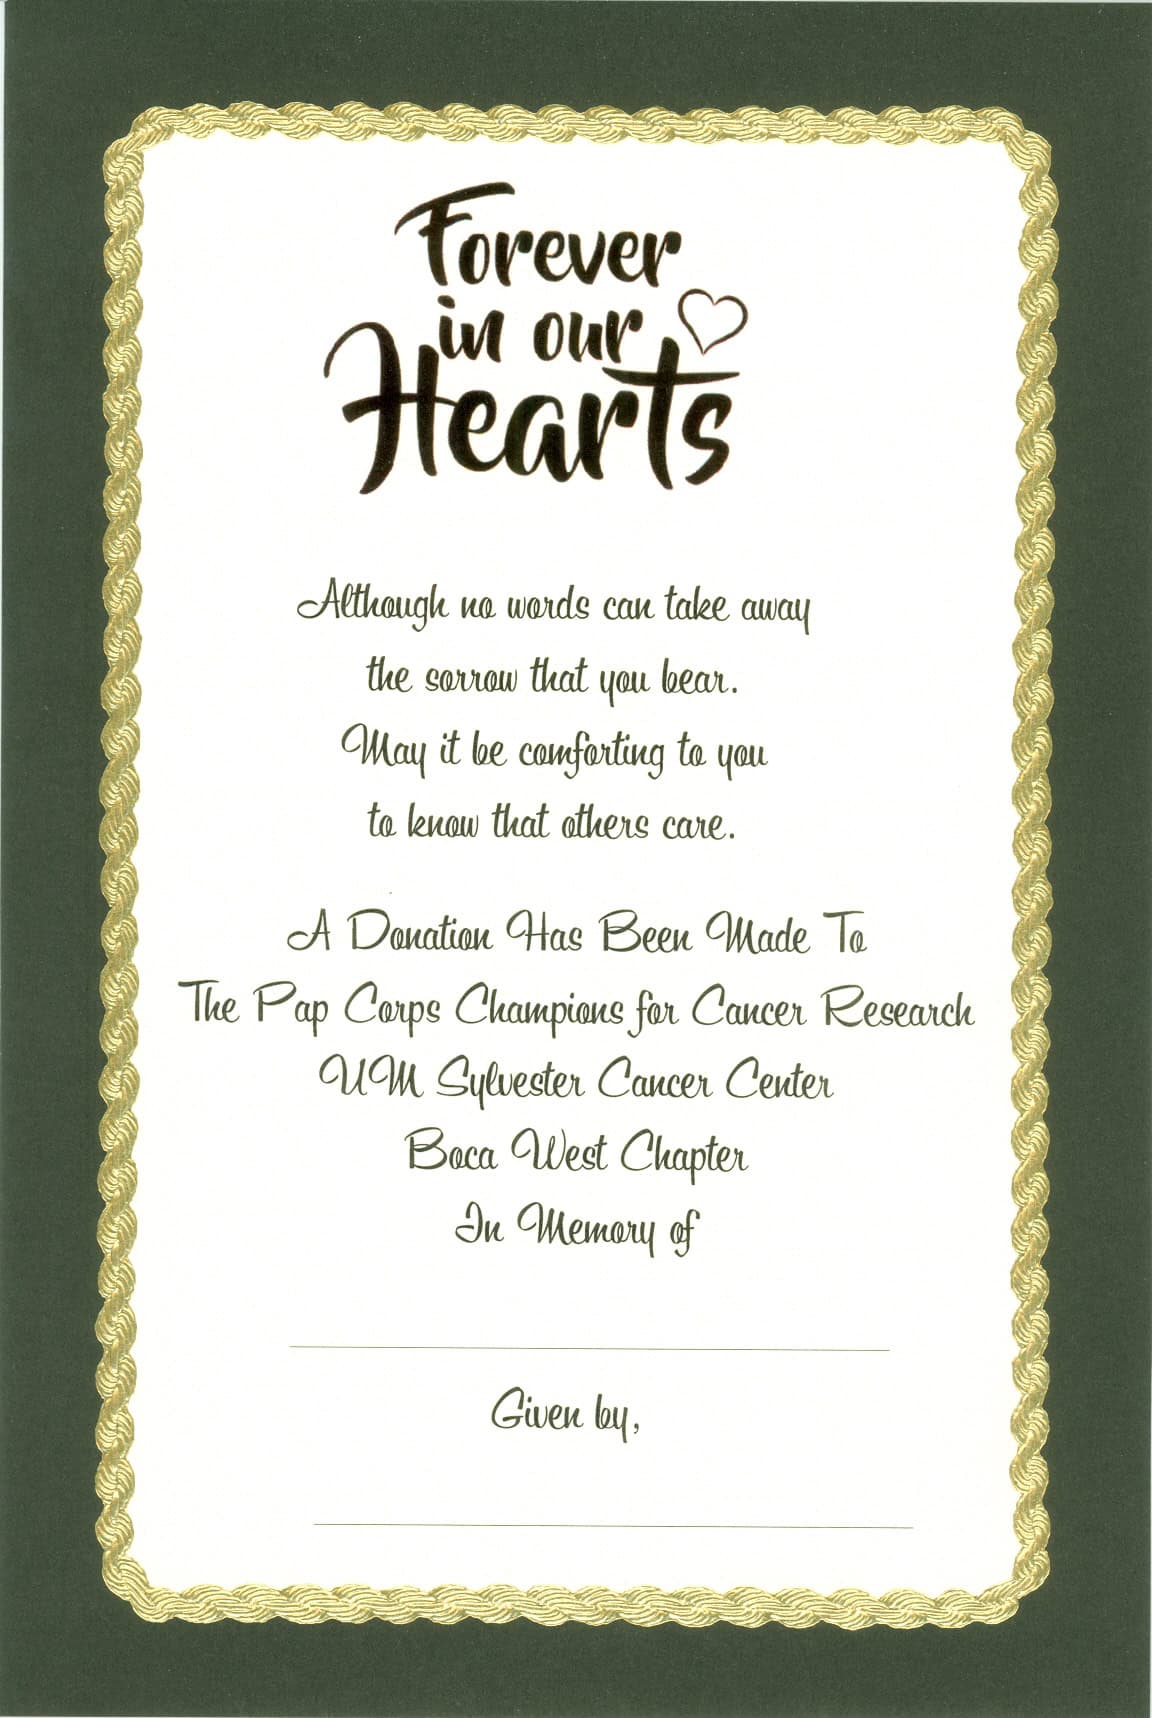 Forever
in our
Hearts
Although no words can take away
the sorrow that you bear.
May it be comforting to you
to know that others care.
A Donation Has Been Made To
The Pap Corps Champions for Cancer Research
UM Sylvester Cancer Center
Boca West Chapter
In Memory of
Given by,